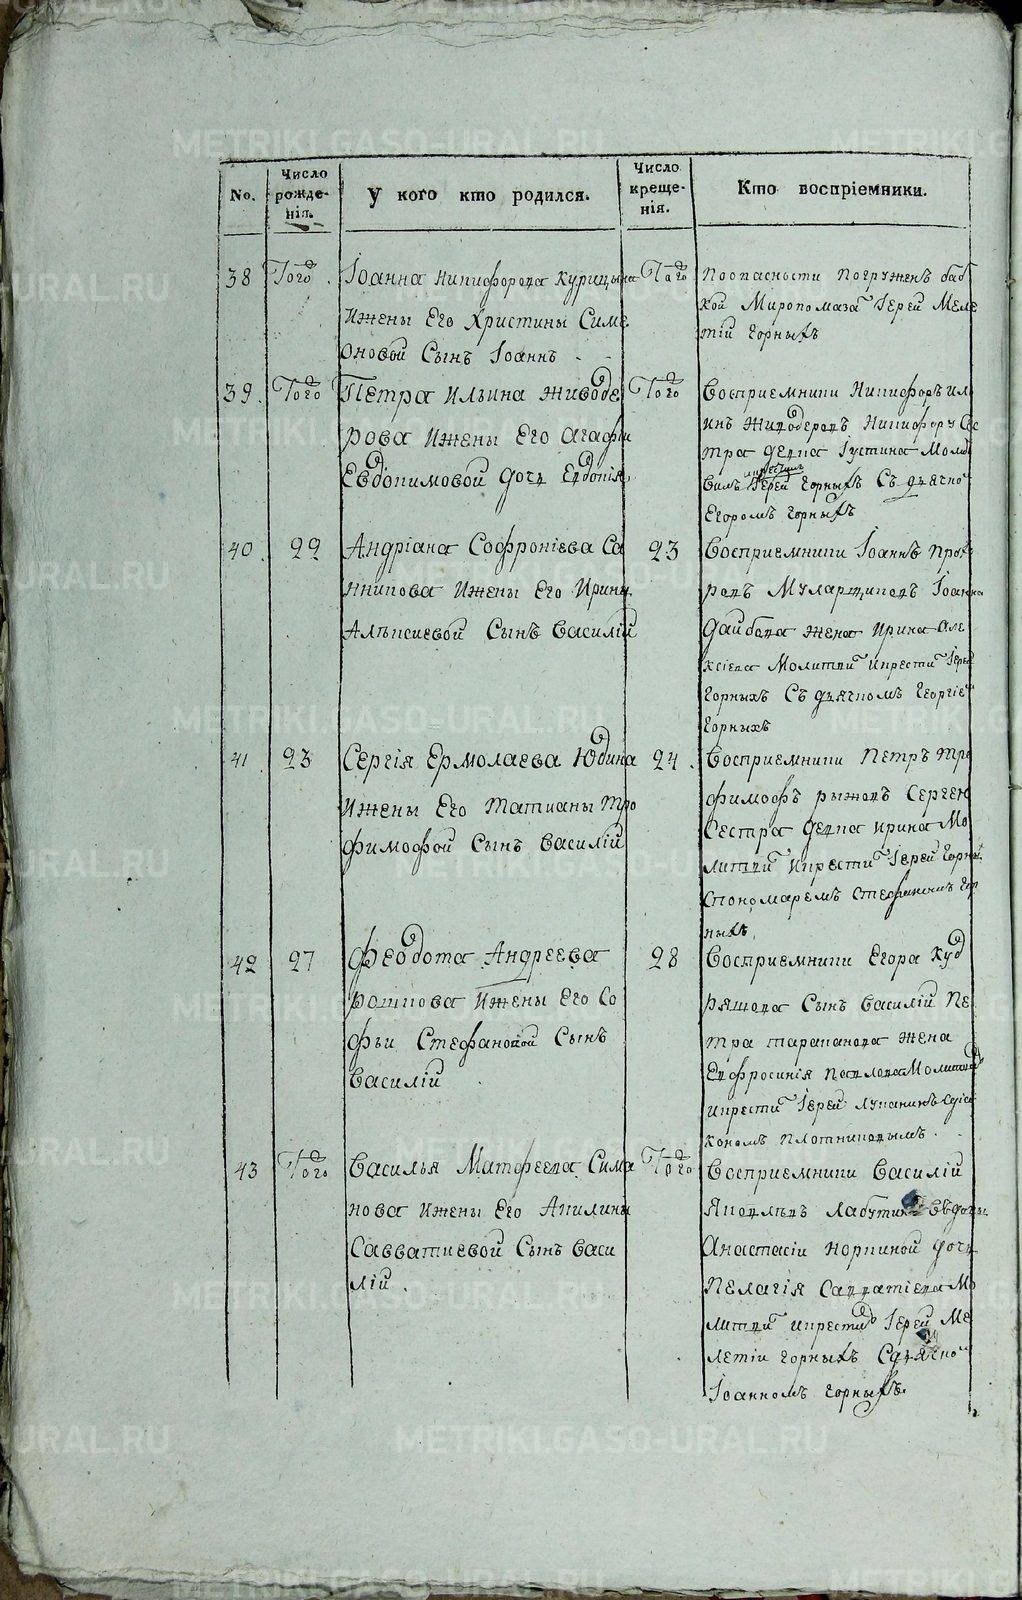 No.
Число рожде-нія.
У кого кто родился.
Число креще-нія.
Кто воспріемники.
38
Того
Іоанна Никифорова Курицына
Ижены Его Христины Симе
оновой Сынъ Іоаннъ
Того
Поопасности Погруженъ баб
кой Миропомаза Іерей Меле
тій Горныхъ
39.
Того
Петра Ильина Живоде
рова Ижены Его Агафіи
Евдокимовой дочь Евдокія
Того
Восприемники Никифоръ Ил
инъ Живодеровъ Никифору Сес
тра девка Іустина Молит
вилъ икрестилъ Іерей Горныхъ Съ дьячко
Егоромъ Горныхъ
40.
22
Андріана Софроніева Са
нникова Ижены Его Ирины
Алексиевой Сынъ Василій
23
Восприемники Іоаннъ
Муларщиковъ Іоанна
жена Ирина Але
ксіева Молитви икрести Іерей
Горныхъ Съ дьячкомъ Георгіе
Горныхъ
41.
23
Сергія Ермолаева Юдина
Ижены Его Татианы Тро
фимофой Сынъ Василій
24.
Восприемники Петръ Тро
фимофъ рыжовъ Сергею
Сестра девка Ирина Мо
литви икрести Іерей Горны
Спономаремъ Стефаномъ Гор
ныхъ
42
27
Феодота Андреева
рошкова Ижены Его Со
фьи Стефановой Сынъ
Василій
28
Восприемники Егора Куд
ряшова Сынъ Василій Пе
тра Тараканова жена
Евфросинія Молитви
икрести Іерей Лукания
кономъ Плотниковымъ.
43
Того
Василья Матфеева Сима
нова Ижены Его Акилины
Савватиевой Сынъ Васи
лій.
Того
Восприемники Василій
Яковлевъ Лабутин вдовы
Анастасіи Норкиной дочь
Пелагія Савватіева Мо
литви икрести Іерей Ме
летіи Горныхъ Сдьячко
Іоанномъ Горныхъ.
METRIKI.GASO-URAL.RU